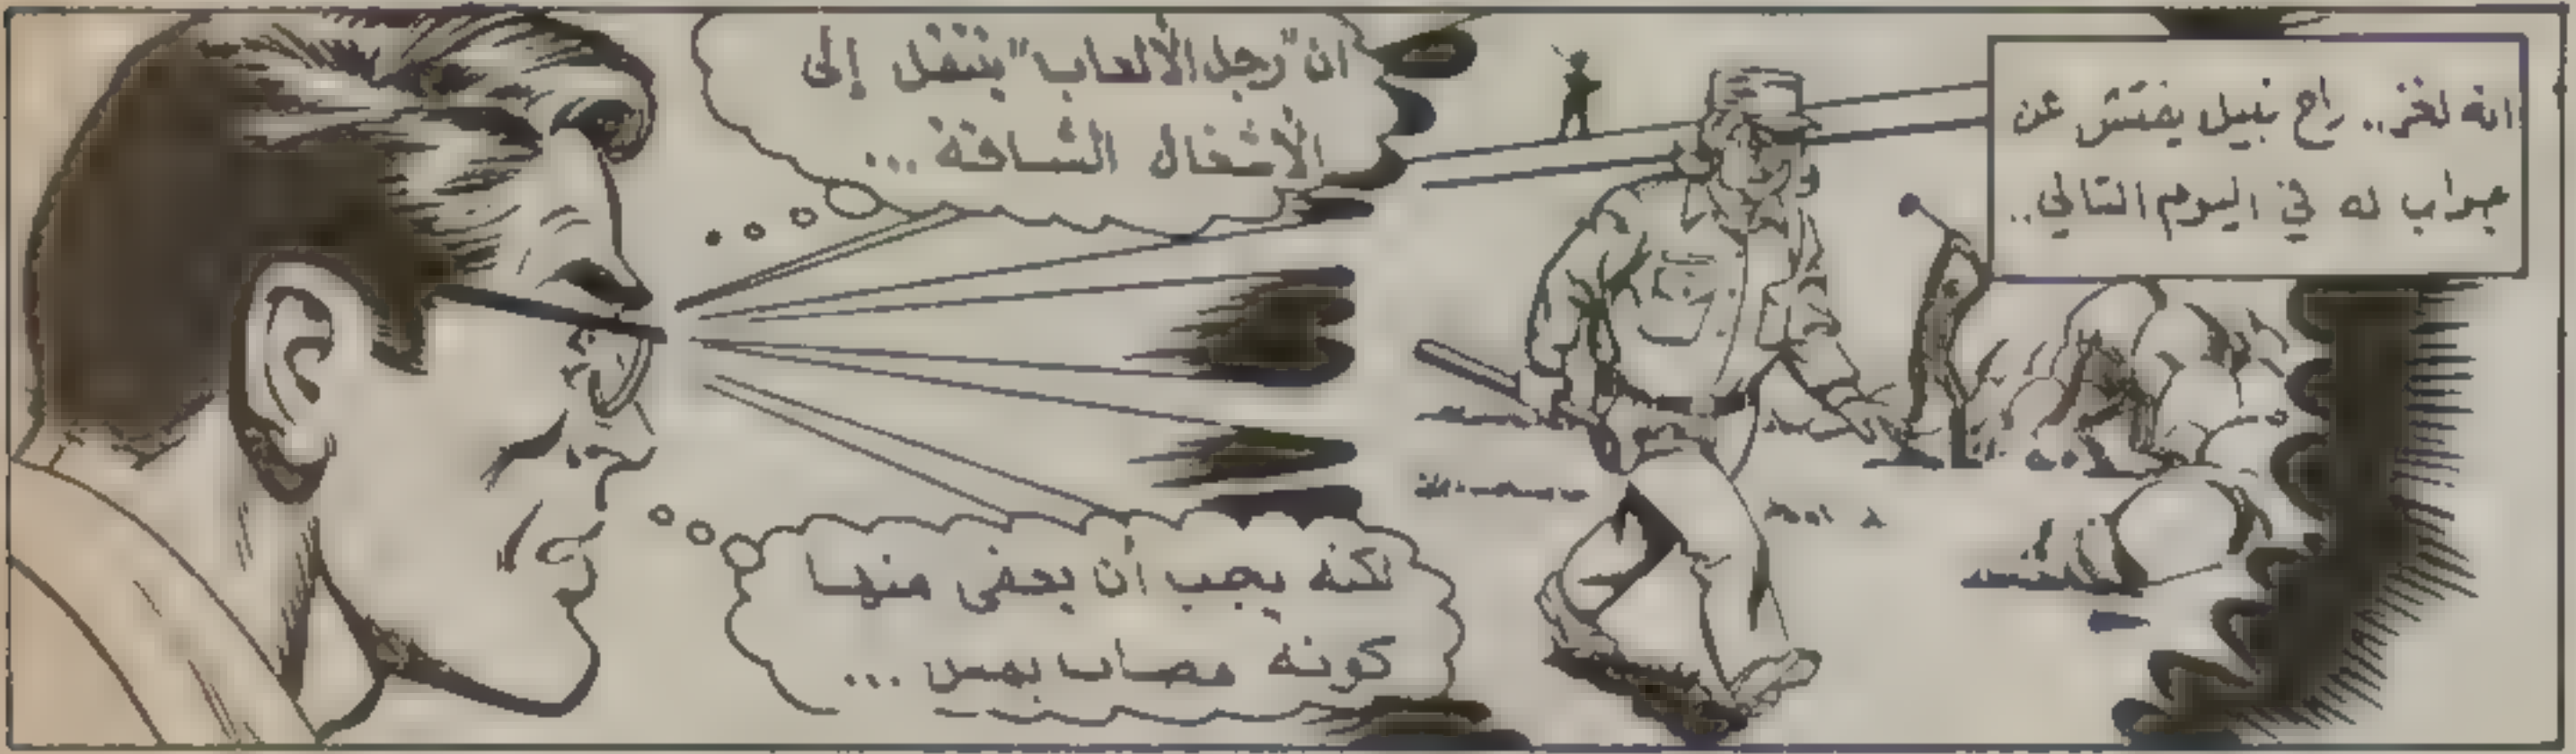 انه لغز.. راح نبيل يفتش عن
جواب له في اليوم التالي..
ان "رجل الألعاب" ينتقل إلى
الأشغال الشاقة...
لكنه يجب أن يعفى منها
كونه مصاب بمس...